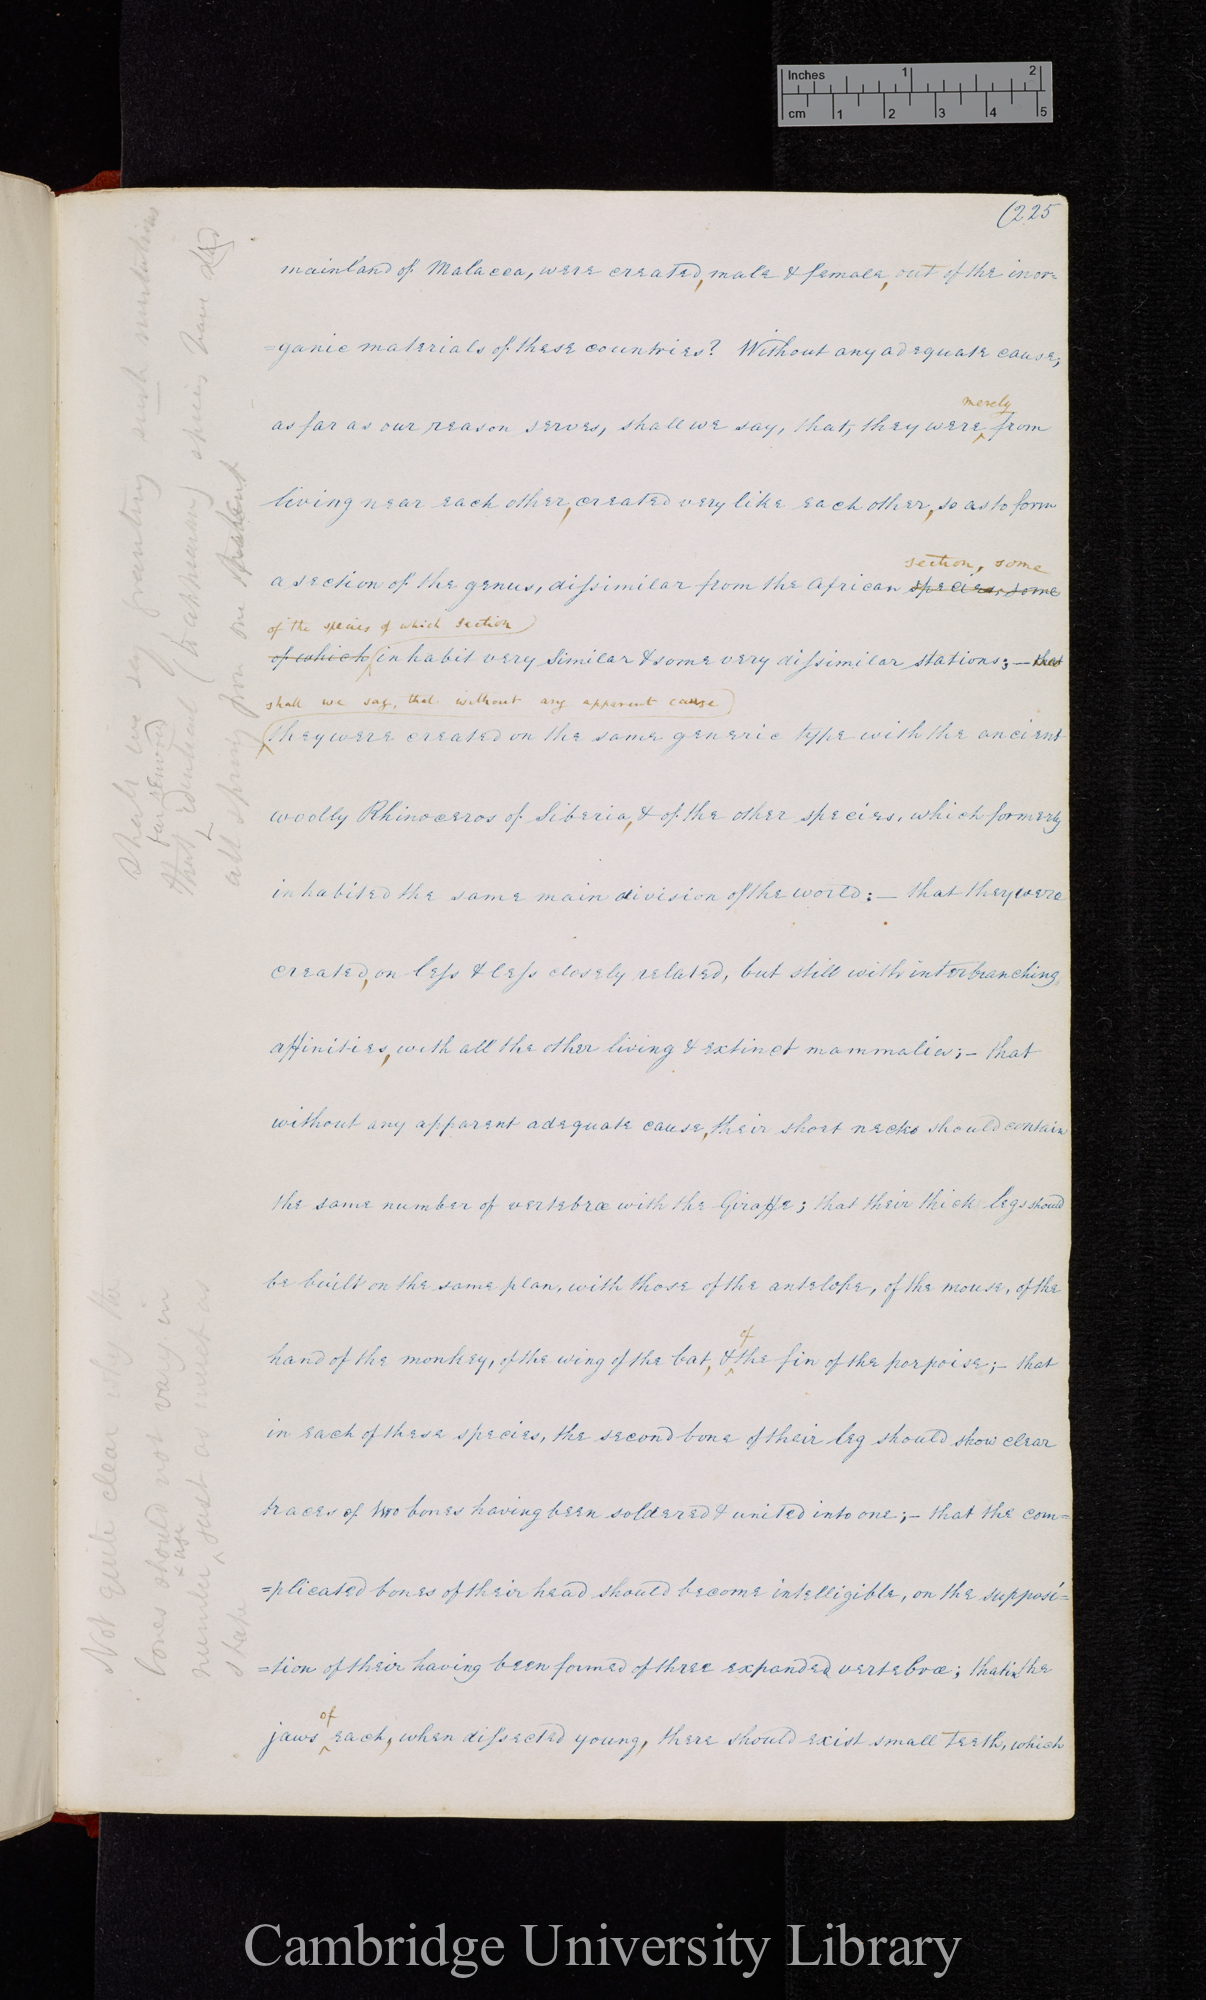 Inches 1 2
cm 1 2 3 4 5
(225
mainland of Malacca, were created, male & female, out of the inor=
=ganic materials of these countries? Without any adequate cause,
merely
as far as our reason serves, shall we say, that, they were from
living near each other, created very like each other, so as to form
section, some
a section of the genus, dissimilar from the African species, some
of the species of which section
of which inhabit very similar & some very dissimilar stations; — that
shall we say, that without any apparent cause
they were created on the same generic type with the ancient
woolly Rhinoceros of Siberia, & of the other species, which formerly
inhabited the same main division of the world: — that they were
created, on less & less closely related, but still with interbranching
affinities, with all the other living & extinct mammalia; — that
without any apparent adequate cause, their short necks should contain
the same number of vertebræ with the Giraffe; that their thick legs should
be built on the same plan, with those of the antelope, of the mouse, of the
of
hand of the monkey, of the wing of the bat, & the fin of the porpoise; — that
in each of these species, the second bone of their leg should show clear
traces of two bones having been soldered & united into one; — that the com=
=plicated bones of their head should become intelligible, on the supposi=
=tion of their having been formed of three expanded vertebræ; that in the
of
jaws each, when dissected young, there should exist small teeth, which
Shall we say granting such mutations
far removed
that identical (to appearance) species have
all sprung from one
Not quite clear why the
bones should not vary in
& use
number just as much as
shape
Cambridge University Library